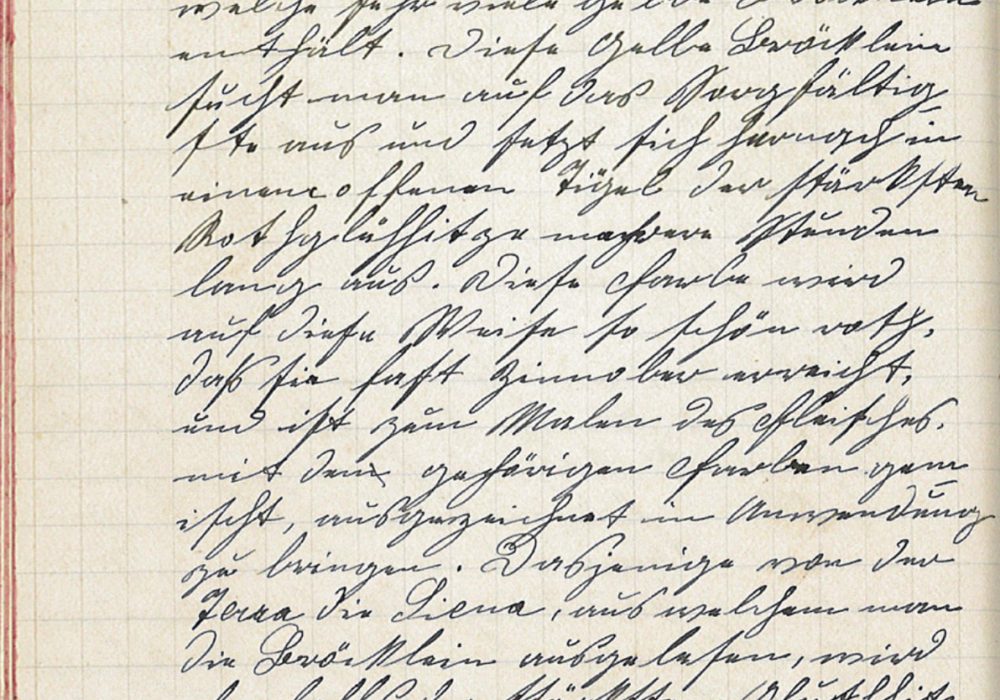 welche sehr viele gelbe Bröcklein
enthält. Diese gelbe Bröcklein
sucht man auf das Sorgfältig
ste aus und setzt sich hernach in
einem offenen Tigel der stärksten
Rothglühhitze mehrere Stunden
lang aus. Diese Farbe wird
auf diese Weise so schön roth,
daß sie fast Zinnober erreicht,
und ist zum Malen des Fleisches,
mit den gehörigen Farben gem
ischt, ausgezeichnet in Anwendung
zu bringen. Dasjenige von der
Terra die Siena, aus welchem man
die Bröcklein ausgelesen, wird